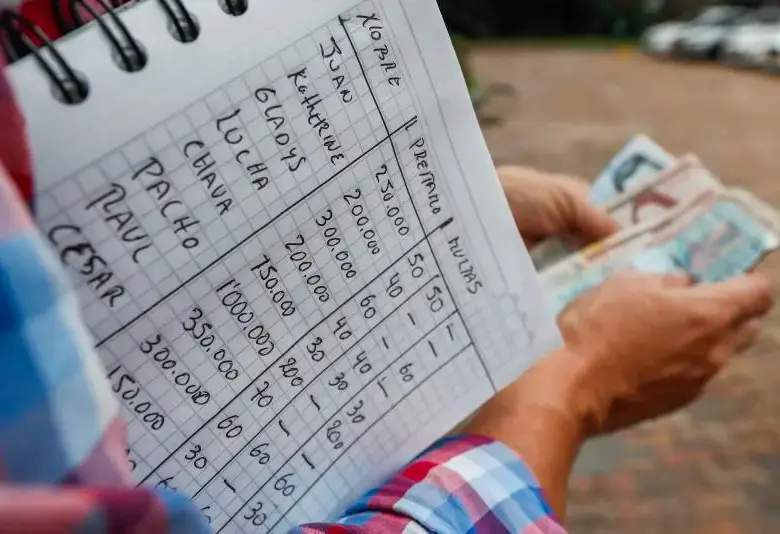 JUAN 250.000 50 50 –
KATHERINE 200.000 40 – –
GLADYS 300.000 60 – 60
LUCHA 200.000 40 40 –
CHAVA 750.000 30 30 30
PACHO 1'000.000 200 – 200
RAUL 350.000 70 – –
CESAR 300.000 60 60 60
150.000 30 – 30